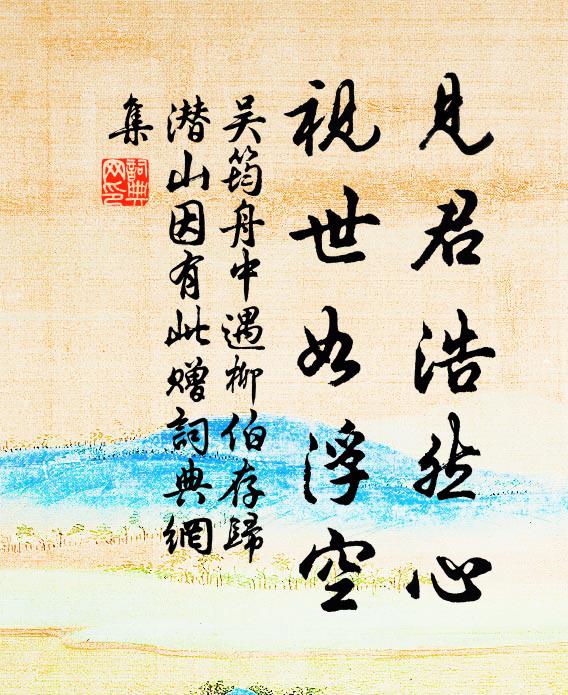 見君浩然心
視世如浮空
吴筠舟中遇柳伯存歸
潜山因有此贈詞典網
集
詞典網印